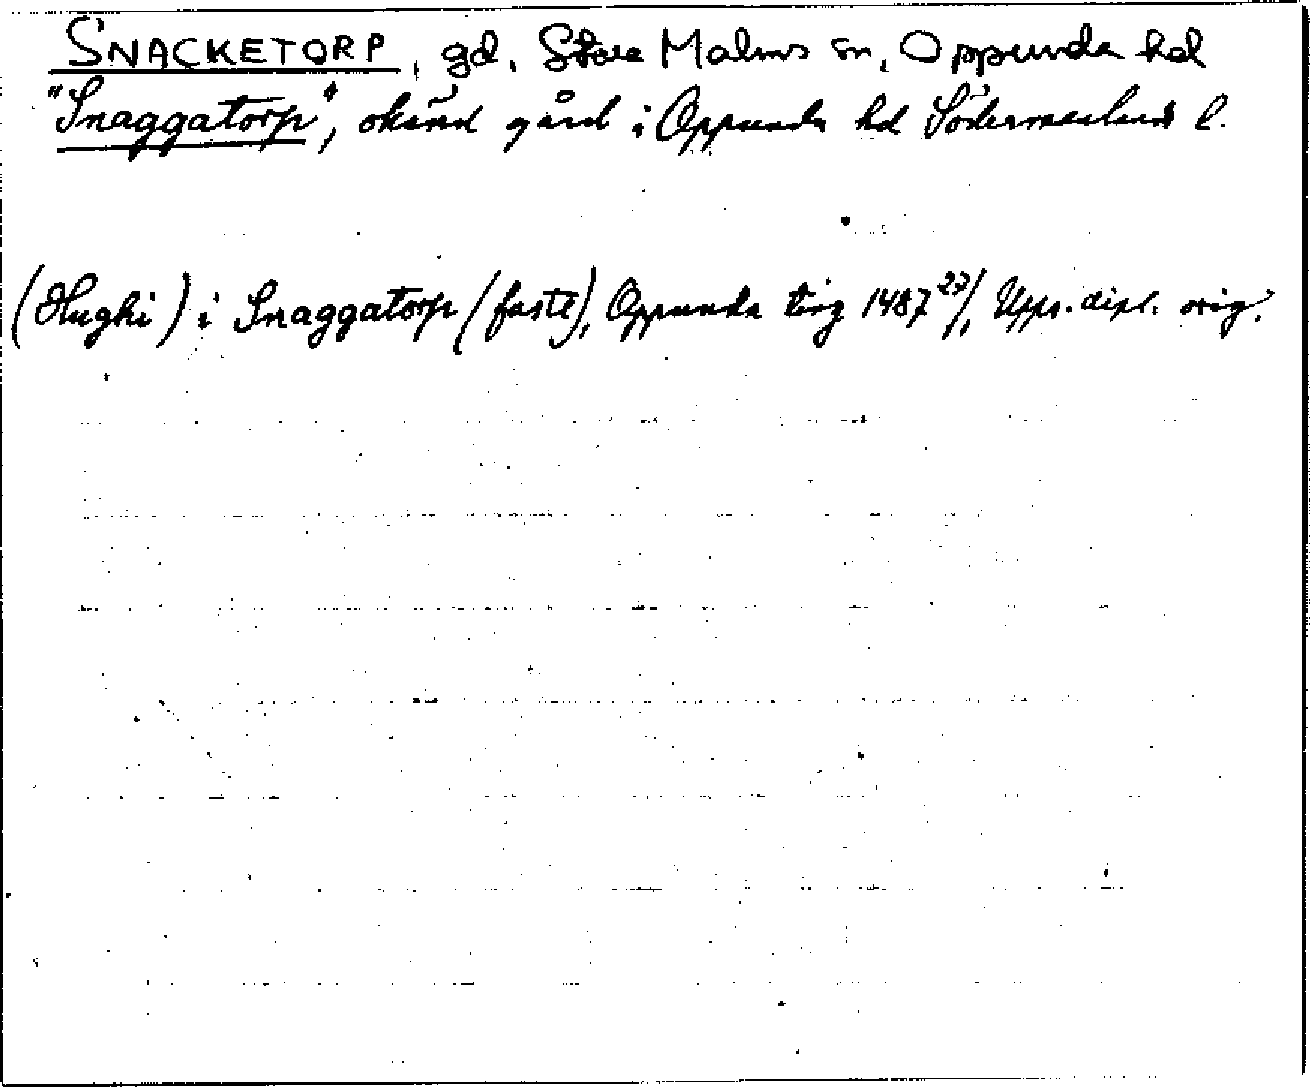 SNACKETORP, gd, Stora Malms sn, Oppunda hd
"Snaggatorp", okänd gård i Oppunda hd Södermanlands l.
(Hughi) i Snaggatorp (faste), Oppunda ting 1487 Upps. dipl. orig.